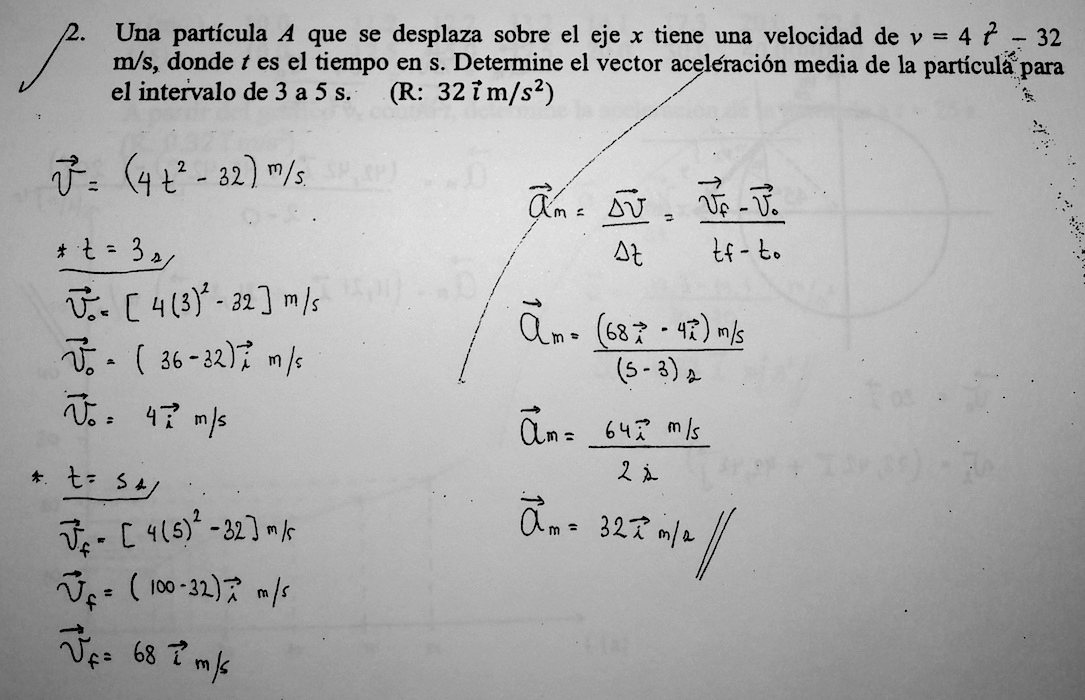 2. Una partícula A que se desplaza sobre el eje x tiene una velocidad de v = 4 t² – 32
m/s, donde t es el tiempo en s. Determine el vector aceleración media de la partícula para
el intervalo de 3 a 5 s. (R: 32 i⃗ m/s²)
v⃗ = (4t² - 32) m/s
* t = 3 s
v⃗₀ = [4(3)² - 32] m/s
v⃗₀ = (36-32) i⃗ m/s
v⃗₀ = 4 i⃗ m/s
* t = 5 s
v⃗f = [4(5)² - 32] m/s
v⃗f = (100-32) i⃗ m/s
v⃗f = 68 i⃗ m/s
a⃗m = Δv⃗ / Δt = v⃗f - v⃗₀ / tf - t₀
a⃗m = (68 i⃗ - 4 i⃗) m/s / (5-3) s
a⃗m = 64 i⃗ m/s / 2 s
a⃗m = 32 i⃗ m/s